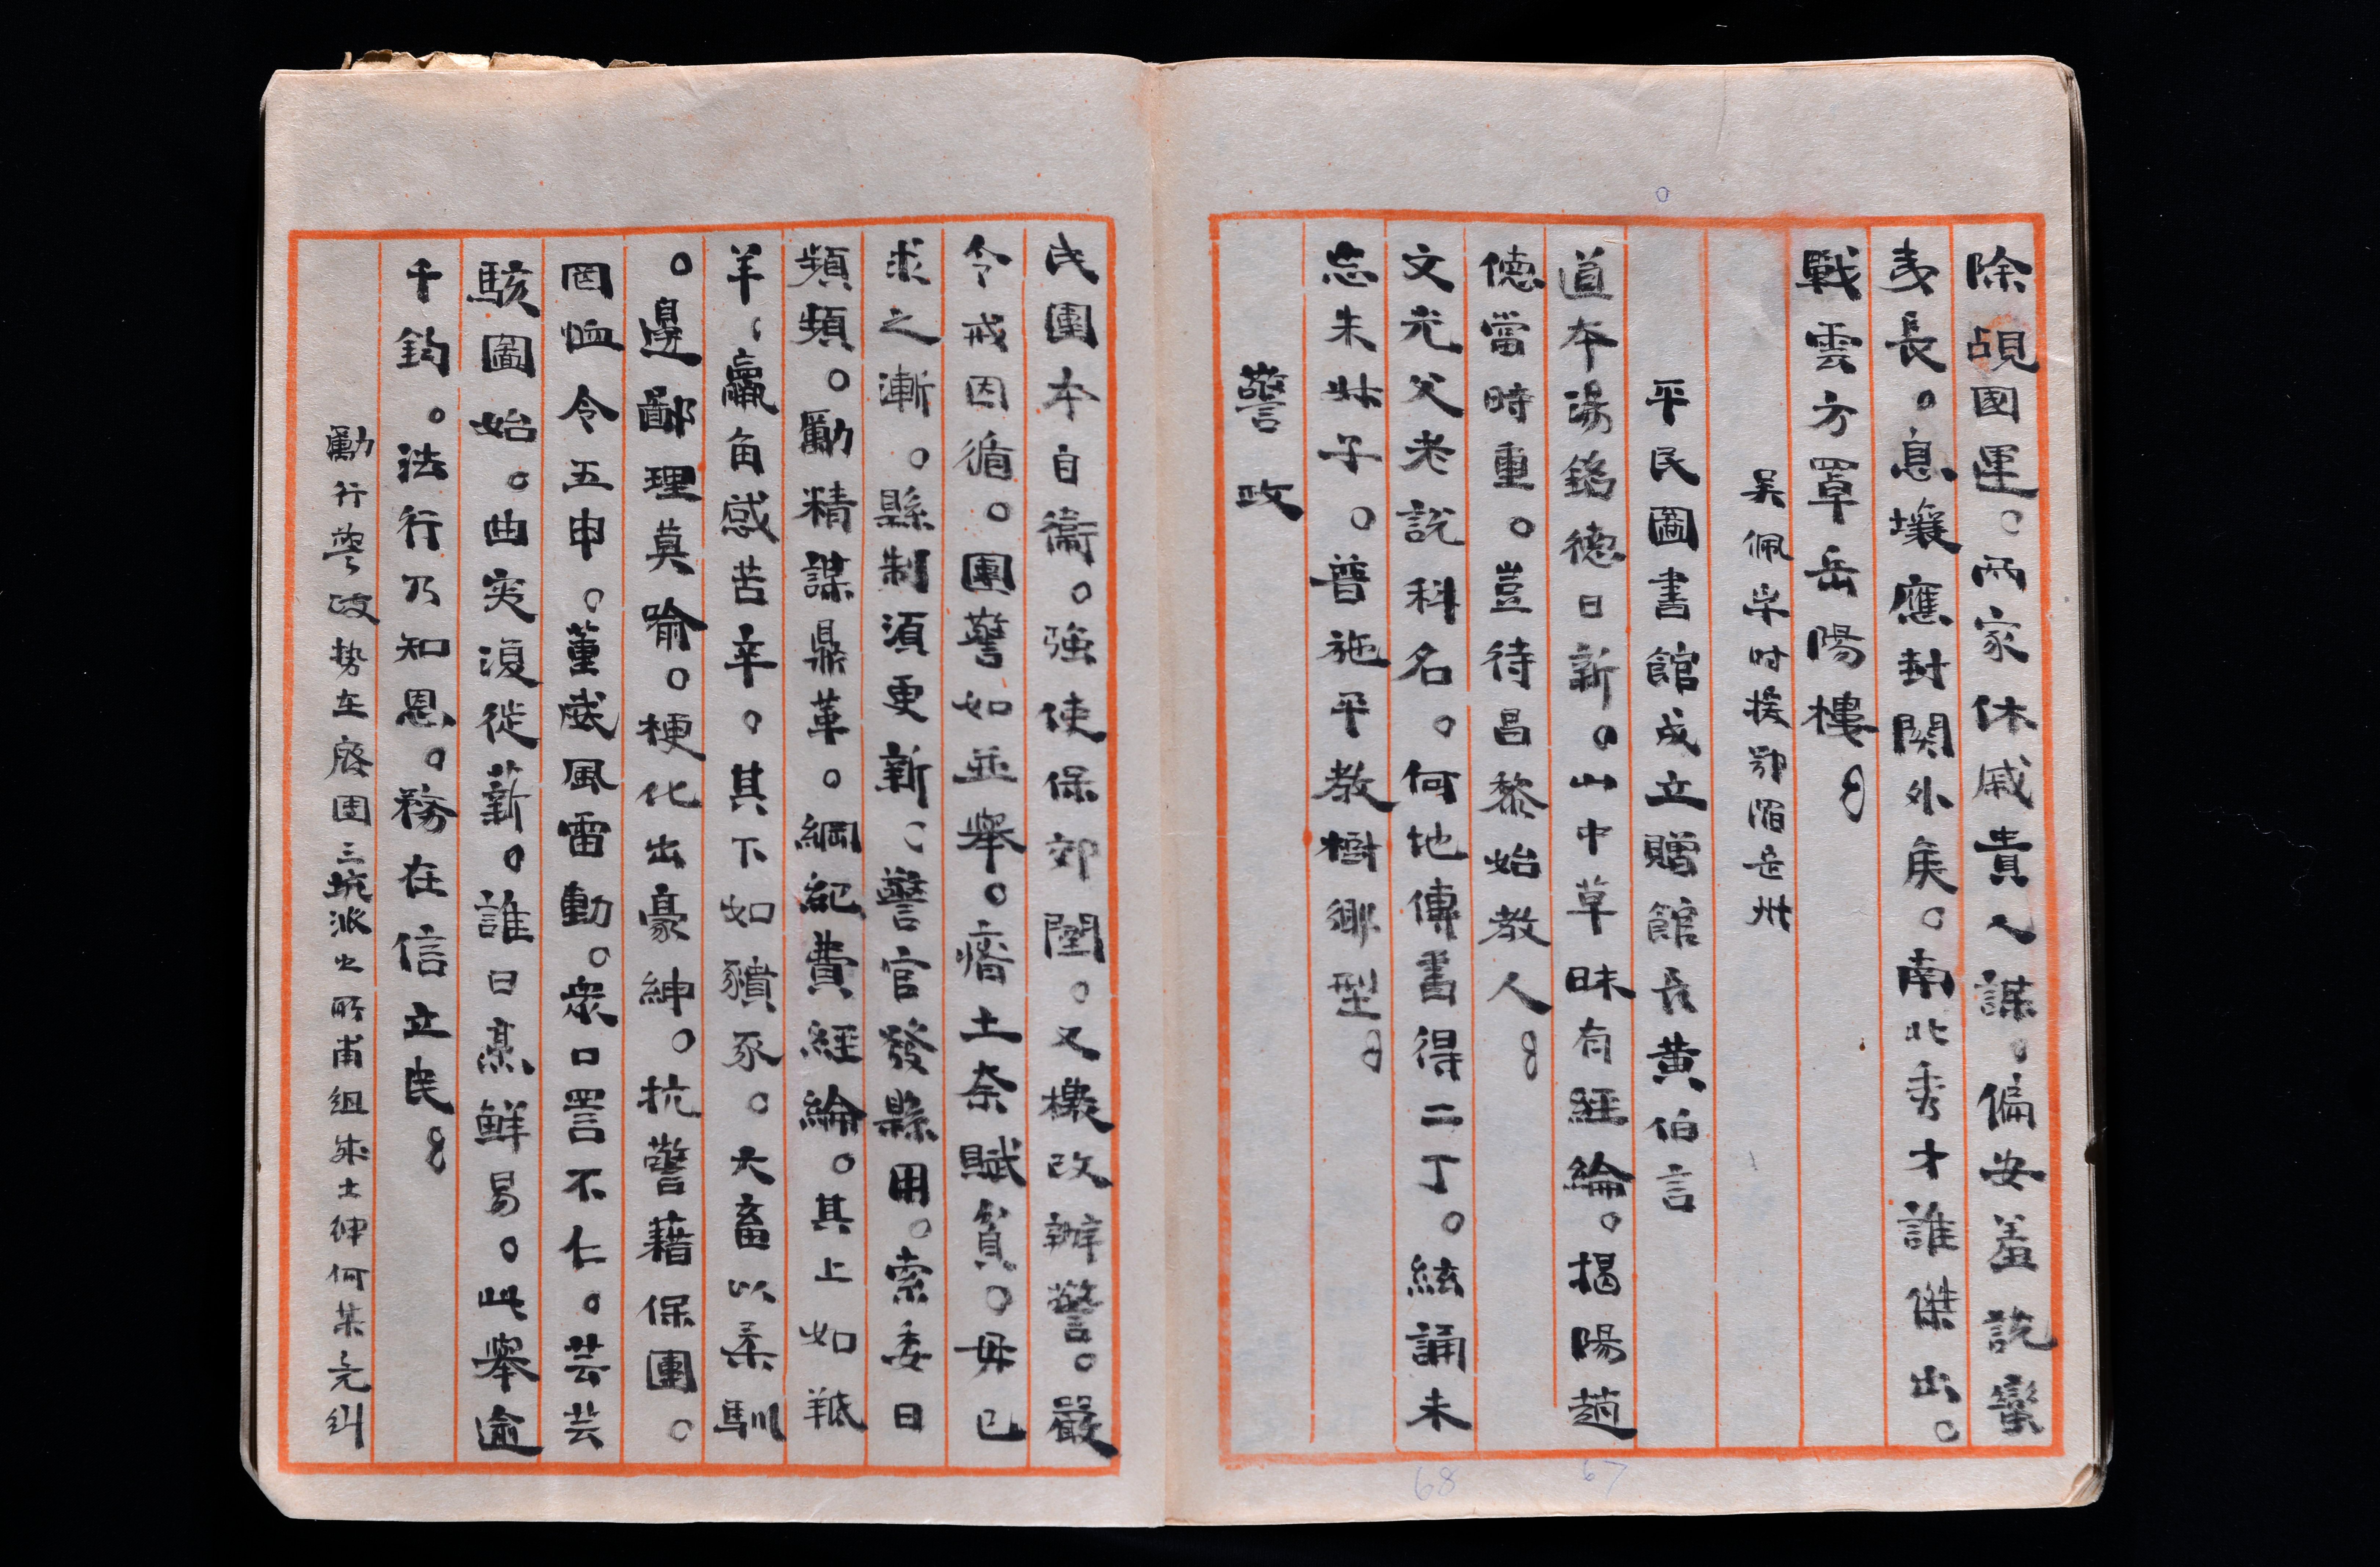 除覘國運。兩家休戚貴人謀。偏安羞說蠻
夷長。息壤應封關外矦。南北秀才誰傑出。
戰雲方罩岳陽樓。
吳佩孚时援鄂濳岳州
平民圖書館成立贈館長黄伯言
道本湯銘德日新。山中草昧有經綸。揭陽趙
德當時重。豈待昌黎始教人。
文光父老說科名。何地傳書得二丁。絃誦未
忘朱姑子。普施平教樹鄉型。
警政
民團本自衞。強使保郊闉。又櫢改辦警。嚴
令戒因循。團警如並舉。瘠土奈賦貧。毋已
求之漸。縣制須更新。警官發縣用。索委日
頻頻。勵精謀鼎革。綱紀費經綸。其上如羝
羊。羸角感苦辛。其下如豶豕。大畜以柔馴
。邊鄙理莫喻。梗化出豪紳。抗警藉保團。
罔恤令五申。董威風雷動。衆口詈不仁。芸芸
駭圖始。曲突復徙薪。誰曰烹鮮易。此舉逾
千鈞。法行乃知恩。務在信立民。
勵行警政势在废团三坑派出所甫组成士绅何某亮纠
68 67